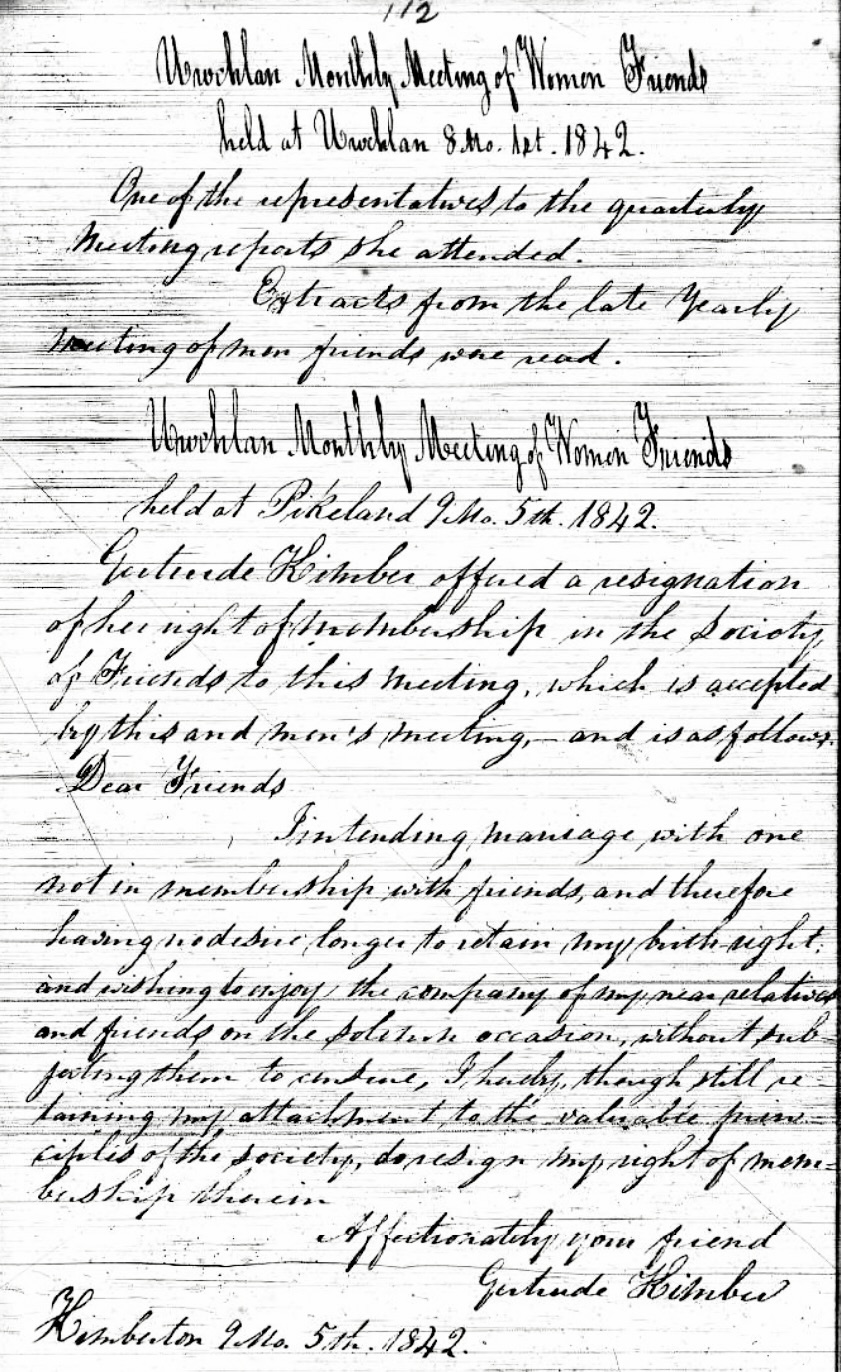 112
Uwchlan Monthly Meeting of Women Friends
held at Uwchlan 8 Mo. 1st. 1842.
One of the representatives to the quarterly
Meeting reports she attended.
Extracts from the late Yearly
Meeting of men friends were read.
Uwchlan Monthly Meeting of Women Friends
held at Pikeland 9 Mo. 5th. 1842.
Gertrude Kimber offered a resignation
of her right of membership in the Society
of Friends to this meeting, which is accepted
by this and men's meeting,— and is as follows.
Dear Friends
I intending marriage with one
not in membership with friends, and therefore
having no desire longer to retain my birth-right,
and wishing to enjoy the company of my near relatives
and friends on the solemn occasion, without sub-
jecting them to censure, I hereby, though still re-
taining my attachment to the valuable prin-
ciples of the society, do resign my right of mem-
bership therein
Affectionately your friend
Gertrude Kimber
Kimberton 9 Mo. 5th. 1842.